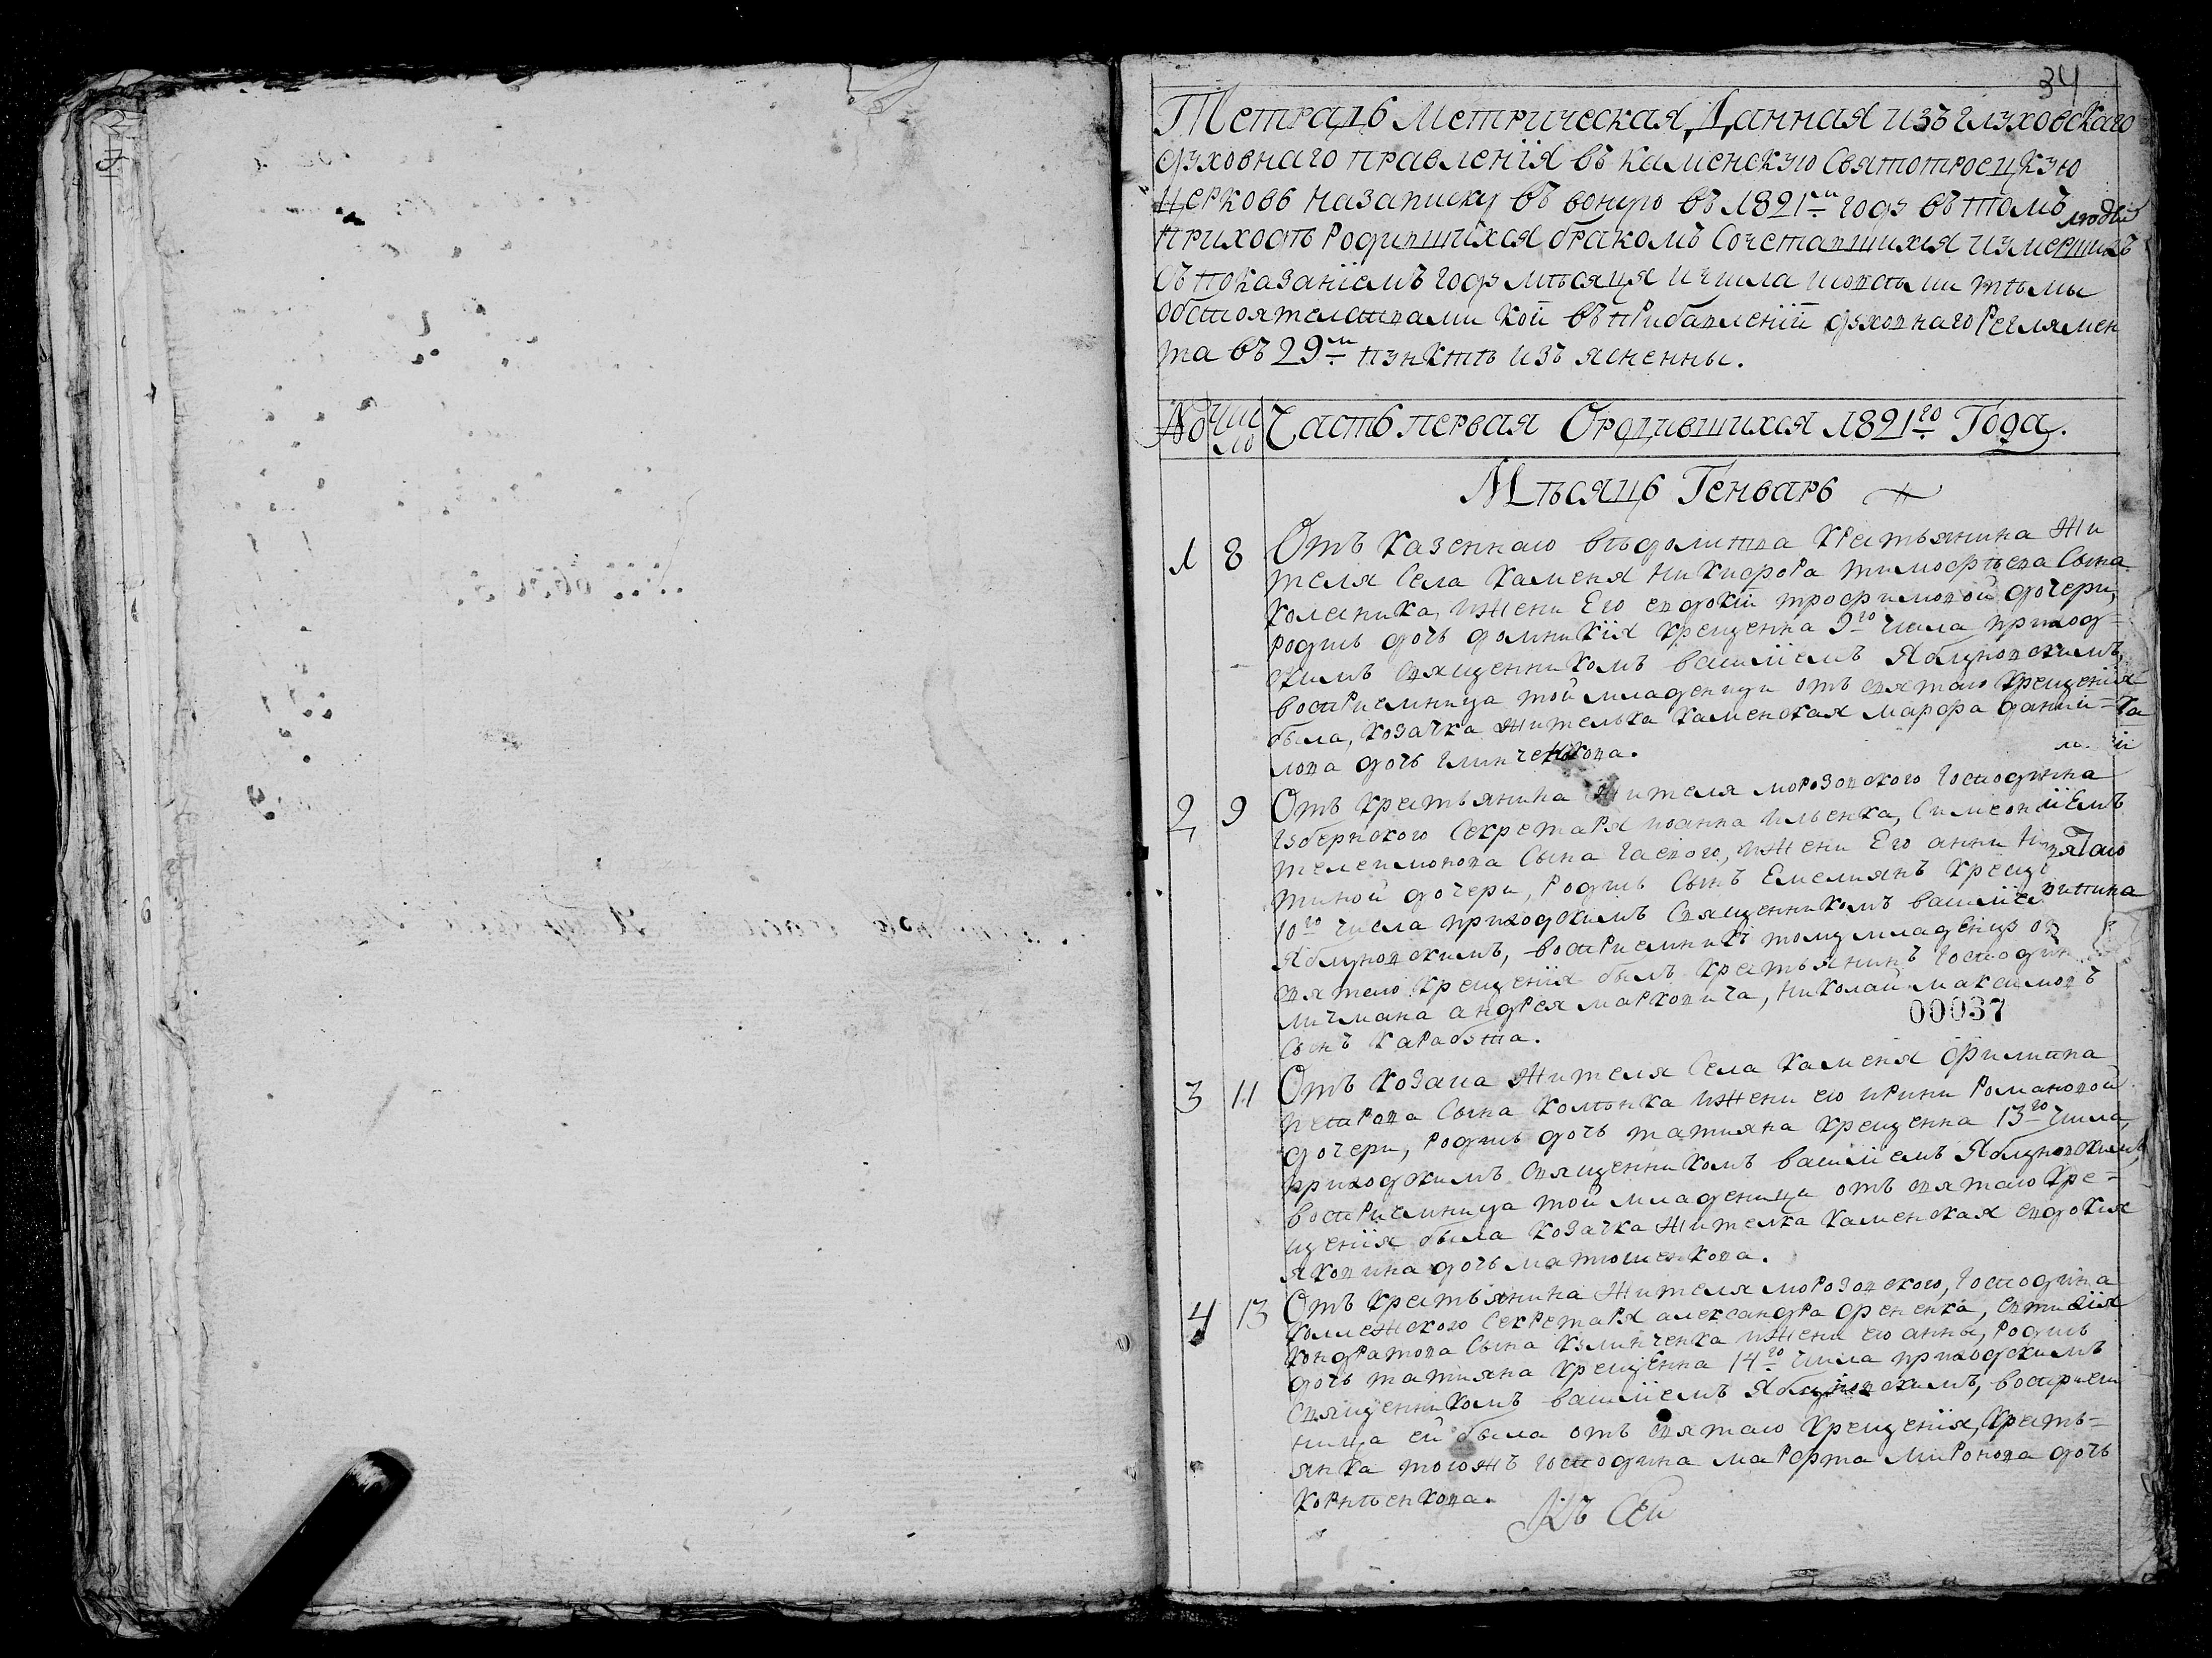 34
Тетрадь Метрическая Данная изъ глуховскаго
духовнаго правленїя въ каменскую Святотроецкую
Церковь назаписку въ воную въ 1821м году въ томъ
приходѣ родившихся бракомъ Сочетавшихся иумершихъ людей
съ показанїемъ году мѣсяця и числа исовсѣми тѣмы
обстоятелствами кои въ прибавленїи духовнаго Реглямен
та въ 29м пунктѣ изъ ясненны.
№ Число Часть первая Ородившихся 1821го Года.
Мѣсяць Генварь
1 8 Отъ казеннаго вѣдомства крестьянина Жи
теля Села Каменя Никифора тимофѣева Сына
колесника, ижени Его евдокїи трофимовой дочери,
родись дочь домникїя крещенна 9го числа приход-
скимъ Священникомъ василїемъ Яблуновскимъ,
восприемница той младеници отъ святаго крещенїя
была, козачка жителька каменская марфа данїи-
лова дочь
2 9 Отъ крестьянина жителя морозовского господина
губернского Секретаря иоанна ильенка, Симеона
телеимонова Сына гаевого, ижени Его анны
тиной дочери, родись Сынъ Емелиянъ
10го числа приходскимъ Священникомъ
Яблуновскимъ, восприемникъ тому младенцу
святаго крещенїя былъ крестьянинъ
мичмана андрея марковича, николай максимовъ
Сынъ карабута.
00037
3 11 Отъ козака жителя Села Каменя Филиппа
петрова Сына ижени его ирини Романовой
дочери, родись дочь татияна крещенна 13го числа,
приходскимъ Священникомъ василїемъ Яблуновскимъ,
восприемница той младеници отъ святаго кре-
щенїя была козачка жителка каменская евдокия
яковина дочь матюшенкова.
4 13 Отъ крестьянина жителя морозовского, господина
коллежского Секретаря александра
кондратова Сына ижени его анны, родись
дочь татияна крещенна 14го числа приходскимъ
Священникомъ василїемъ Яблуновскимъ, восприем
ница ей была отъ святаго крещенїя, кресть-
янка тогожъ господина марфа миронова дочь
корнѣенкова.
Къ Сей